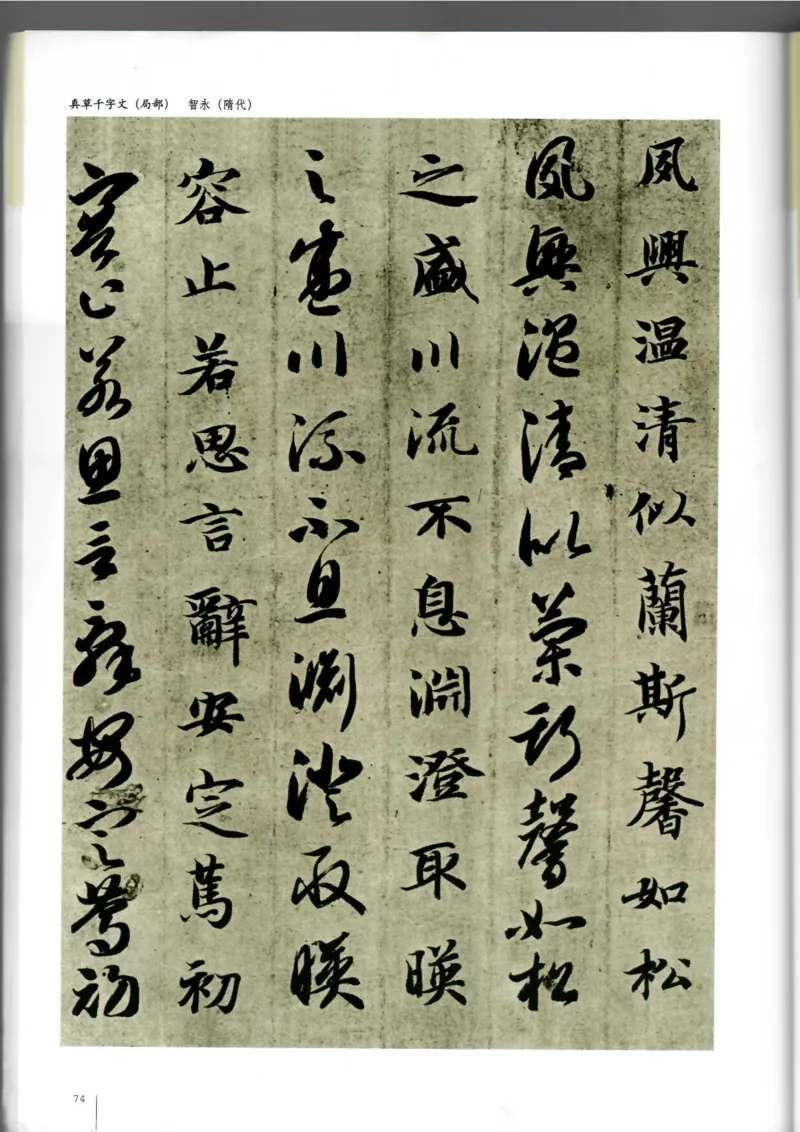 真草千字文（局部） 智永（隋代）
夙興温清似蘭斯馨如松
夙興温清似蘭斯馨如松
之盛川流不息淵澄取暎
之盛川流不息淵澄取暎
容止若思言辭安定篤初
容止若思言辭安定篤初
74